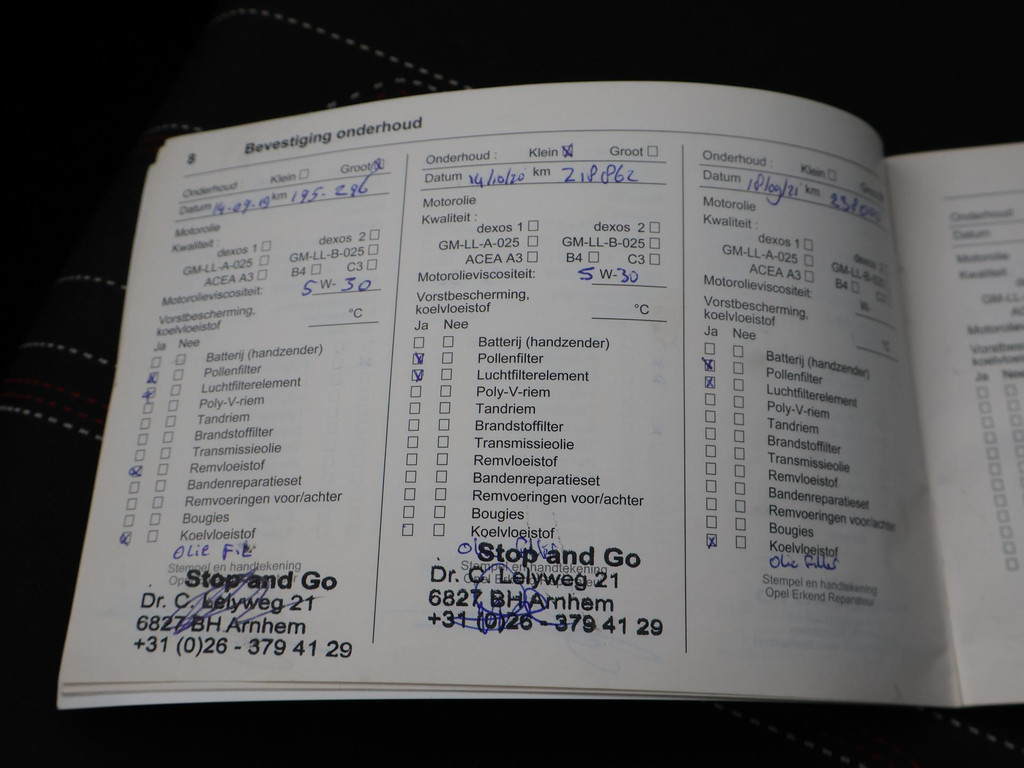 8 Bevestiging onderhoud
Onderhoud : Klein ☐ Groot ☒
Datum 14-09-19 km 195-296
Motorolie
Kwaliteit :
dexos 1 ☐ dexos 2 ☐
GM-LL-A-025 ☐ GM-LL-B-025 ☐
ACEA A3 ☐ B4 ☐ C3 ☐
Motorolieviscositeit: 5 W- 30
Vorstbescherming,
koelvloeistof °C
Ja Nee
☐ ☐ Batterij (handzender)
☒ ☐ Pollenfilter
☒ ☐ Luchtfilterelement
☐ ☐ Poly-V-riem
☐ ☐ Tandriem
☐ ☐ Brandstoffilter
☐ ☐ Transmissieolie
☒ ☐ Remvloeistof
☐ ☐ Bandenreparatieset
☐ ☐ Remvoeringen voor/achter
☐ ☐ Bougies
☒ ☐ Koelvloeistof
OLIE
Stempel en handtekening
Stop and Go
Dr. C. Lelyweg 21
6827 BH Arnhem
+31 (0)26 - 379 41 29
Onderhoud : Klein ☒ Groot ☐
Datum 14/10/20 km 218862
Motorolie
Kwaliteit :
dexos 1 ☐ dexos 2 ☐
GM-LL-A-025 ☐ GM-LL-B-025 ☐
ACEA A3 ☐ B4 ☐ C3 ☐
Motorolieviscositeit: 5 W- 30
Vorstbescherming,
koelvloeistof °C
Ja Nee
☐ ☐ Batterij (handzender)
☒ ☐ Pollenfilter
☒ ☐ Luchtfilterelement
☐ ☐ Poly-V-riem
☐ ☐ Tandriem
☐ ☐ Brandstoffilter
☐ ☐ Transmissieolie
☐ ☐ Remvloeistof
☐ ☐ Bandenreparatieset
☐ ☐ Remvoeringen voor/achter
☐ ☐ Bougies
☐ ☐ Koelvloeistof
Stempel en handtekening
Stop and Go
Dr. C. Lelyweg 21
6827 BH Arnhem
+31 (0)26 - 379 41 29
Onderhoud : Klein ☐ Groot
Datum 18/09/21 km
Motorolie
Kwaliteit :
dexos 1 ☐ dexos 2
GM-LL-A-025 ☐ GM-LL-B-025
ACEA A3 ☐ B4 ☐ C3
Motorolieviscositeit: W-
Vorstbescherming,
koelvloeistof °C
Ja Nee
☐ ☐ Batterij (handzender)
☒ ☐ Pollenfilter
☒ ☐ Luchtfilterelement
☐ ☐ Poly-V-riem
☐ ☐ Tandriem
☐ ☐ Brandstoffilter
☐ ☐ Transmissieolie
☐ ☐ Remvloeistof
☐ ☐ Bandenreparatieset
☐ ☐ Remvoeringen voor/achter
☐ ☐ Bougies
☒ ☐ Koelvloeistof
Olie Filter
Stempel en handtekening
Opel Erkend Reparateur
Onderhoud
Datum
Motorolie
Kwaliteit
Ja Nee